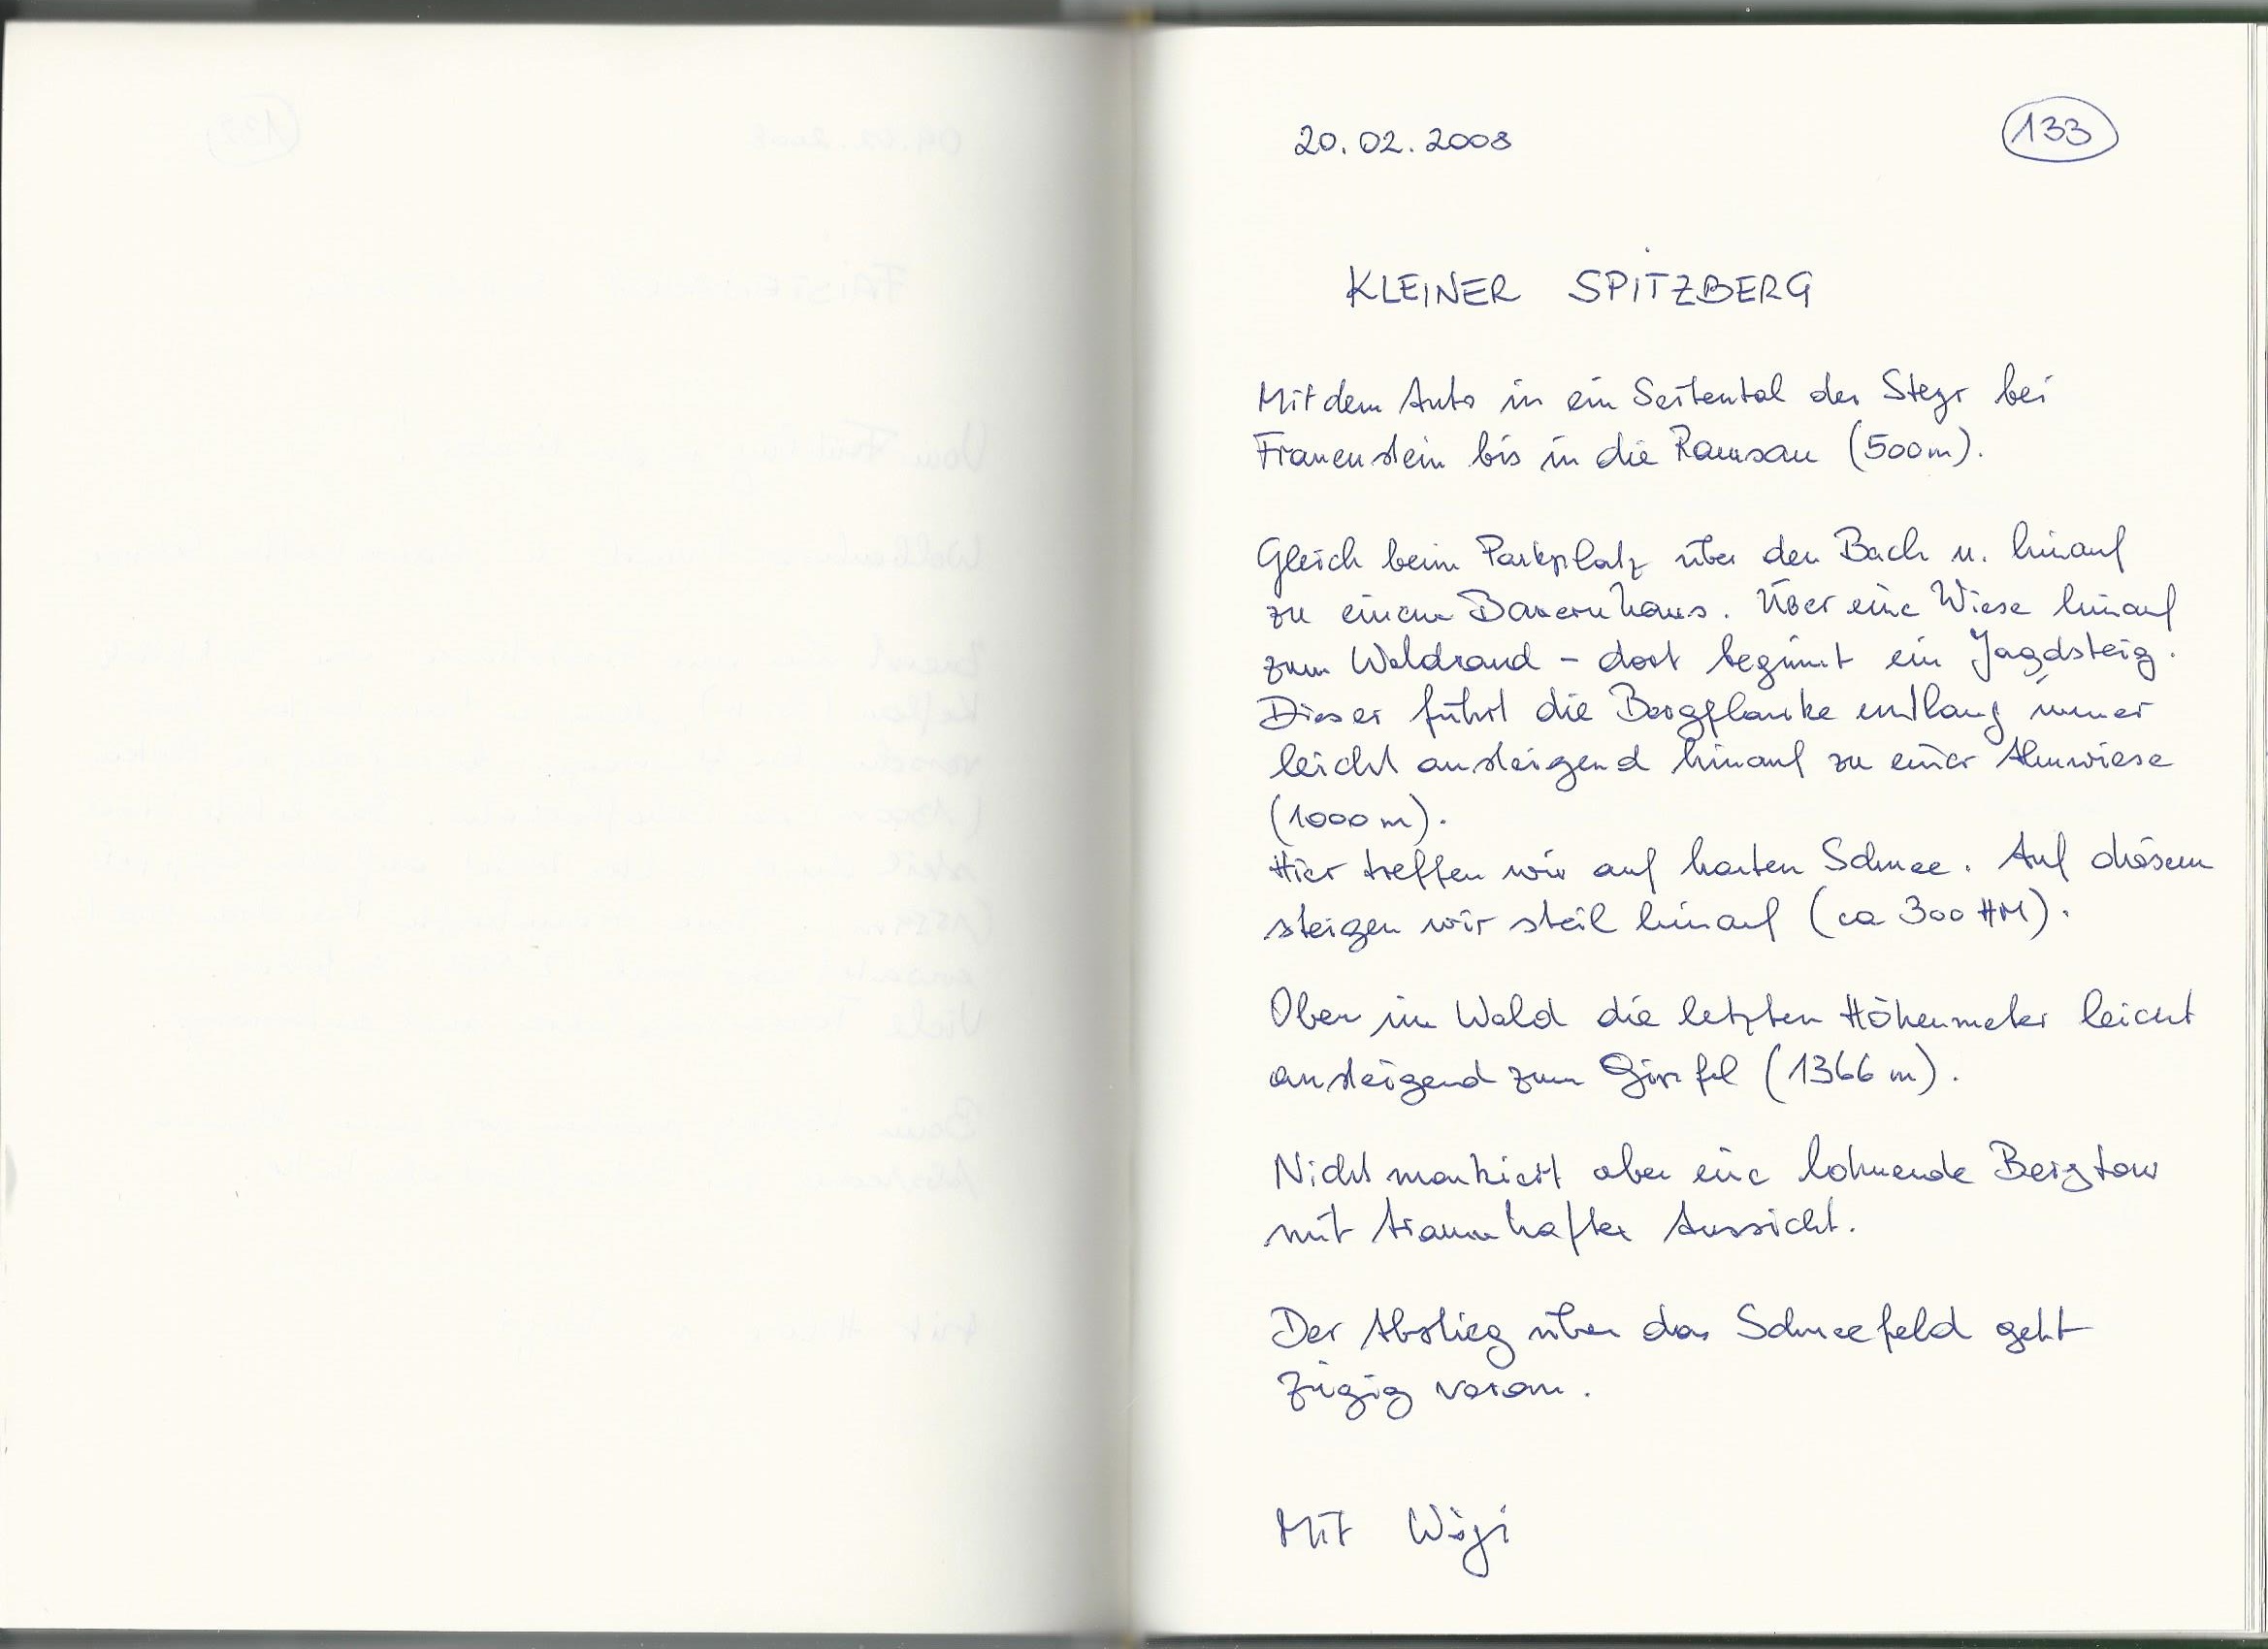 20.02.2008
133
KLEINER SPITZBERG
Mit dem Auto in ein Seitental der Steyr bei
Frauenstein bis in die Ramsau (500m).
Gleich beim Parkplatz über den Bach u. hinauf
zu einem Bauernhaus. Über eine Wiese hinauf
zum Waldrand – dort beginnt ein Jagdsteig.
Dieser führt die Bergflanke entlang immer
leicht ansteigend hinauf zu einer Almwiese
(1000m).
Hier treffen wir auf harten Schnee. Auf diesem
steigen wir steil hinauf (ca 300 HM).
Oben im Wald die letzten Höhenmeter leicht
ansteigend zum Gipfel (1366 m).
Nicht markiert aber eine lohnende Bergtour
mit traumhafter Aussicht.
Der Abstieg über das Schneefeld geht
zügig voran.
Mit